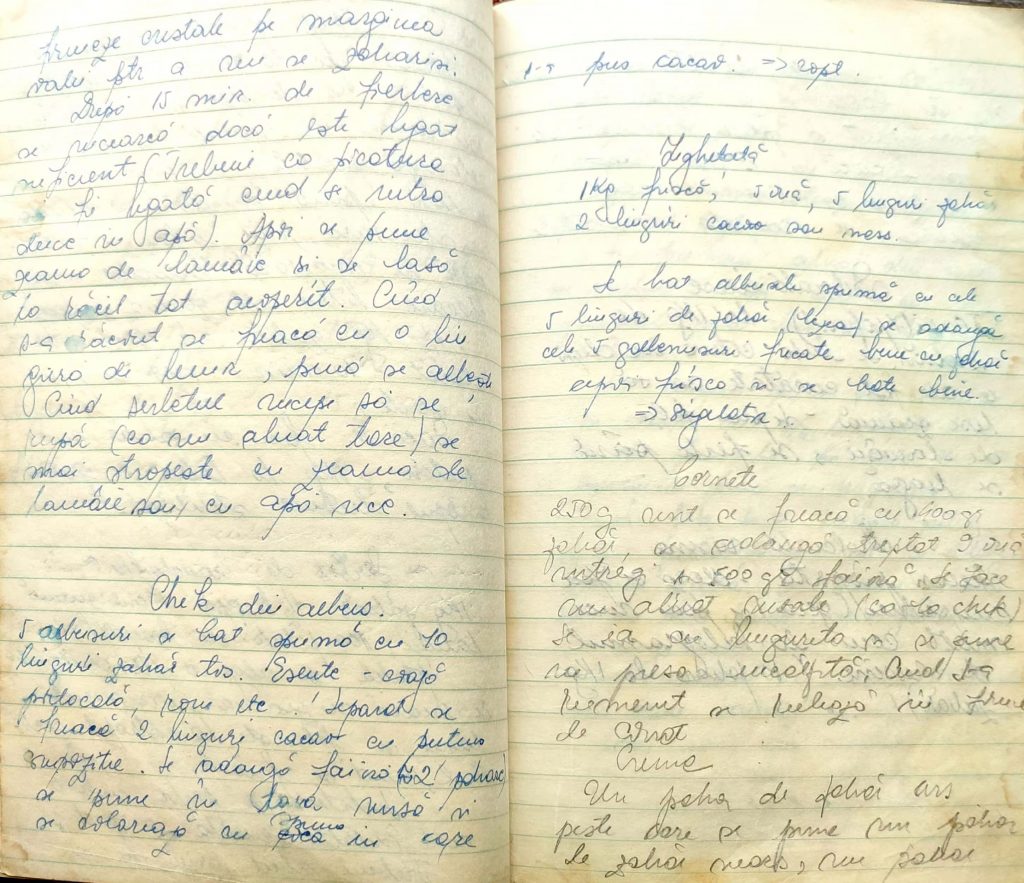 cristale pe marginea
vasului ptr a nu se zaharisi.
După 15 min. de fierbere
se încearcă dacă este legat
suficient (Trebuie ca picătura
fi legată cînd se intro
duce în apă). Apoi se pune
zeamă de lămâie si se lasă
la răcit tot acoperit. Cînd
s-a răcorit se freacă cu o lin
gură de lemn, pînă se albește
Cînd serbetul începe să se
rupă (ca un aluat tare) se
mai stropește cu zeamă de
lamâie sau cu apă rece.
Chek din albuș.
5 albușuri se bat spumă cu 10
linguri zahăr tos. Esente - coajă
portocală, rom etc. Separat se
freacă 2 linguri cacao cu putină
. Se adaugă făină (2 pahare)
se pune în tava unsă si
se colorează cu spuma in care
s-a pus cacao. => copt.
Înghețată
1 Kg frișcă, 5 ouă, 5 linguri zahăr
2 linguri cacao sau ness.
Se bat albusele spumă cu cele
5 linguri de zahăr (), se adaugă
cele 5 gălbenusuri frecate bine cu zahăr
apoi frisca si se bate bine.
=>
Cornete
250g unt se freacă cu 400gr
zahăr, se adaugă treptat 9 ouă
întregi si 500 gr făină. Se face
un aluat moale (ca la chek)
Se ia cu lingurita si se pune
în presa încălzită. Cînd s-a
rumenit se rulează în formă
de cornet
Crema
Un pahar de zahăr ars
peste care se pune un pahar
de zahăr nears, un pahar